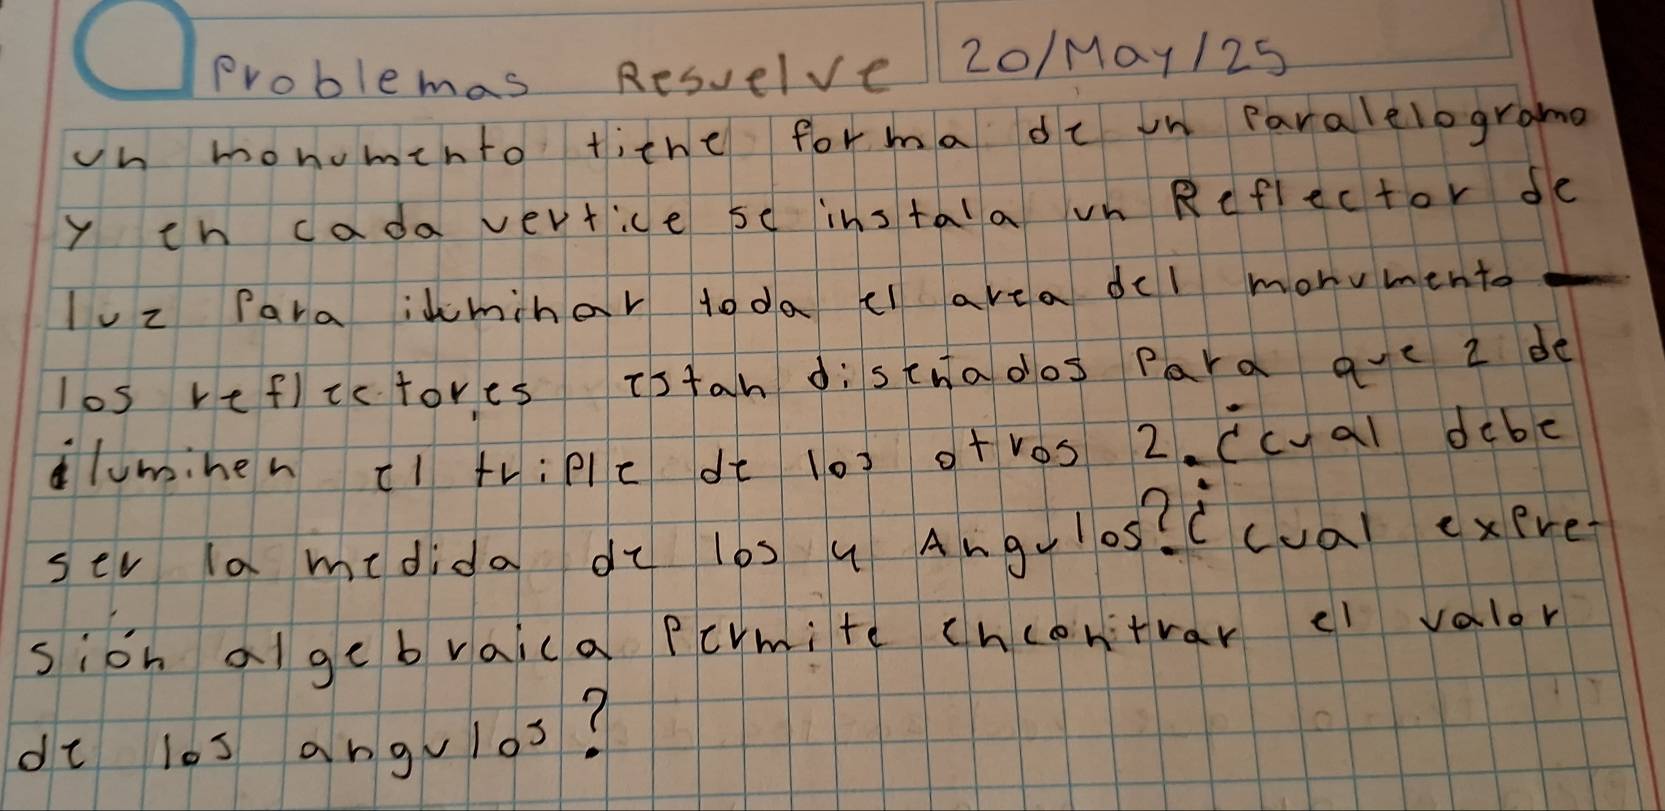 Problemas Resuelve 20/May/25
un monumento tiene forma de un Paralelogramo
y en cada vertice se instala un Reflector de
luz Para iluminar toda el area del monumento
los reflectores estan diseñados Para que 2 de
iluminen el triple de los otros 2. ¿cual debe
ser la medida de los 4 Angulos? ¿cual expre-
sión algebraica Permite encontrar el valor
de los angulos?